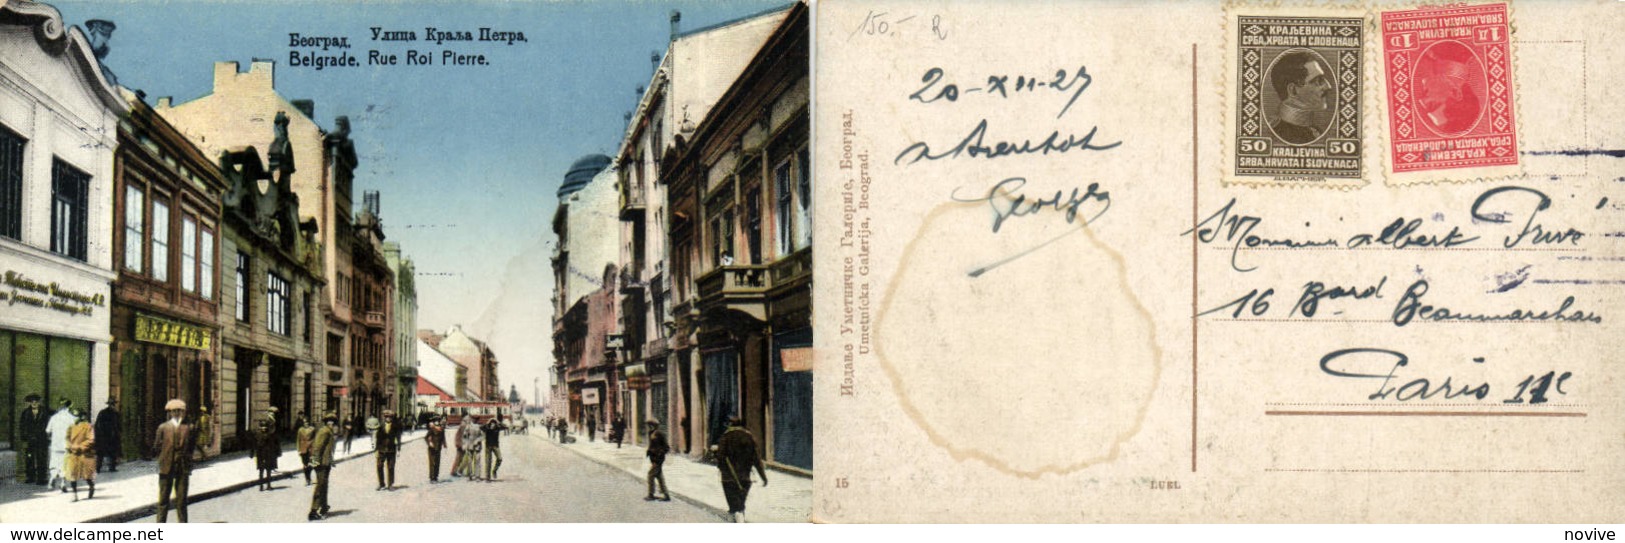 Београд, Улица Краља Петра,
Belgrade. Rue Roi Pierre.
150.- R
20-XII-27
Издање Уметничке Галерије, Београд.
Umetnička Galerija, Beograd.
15
LUEL
КРАЉЕВИНА
СРБА, ХРВАТА И СЛОВЕНАЦА
50 KRALJEVINA 50
SRBA, HRVATA I SLOVENACA
КРАЉЕВИНА
СРБА, ХРВАТА И СЛОВЕНАЦА
1 Д 1 D
KRALJEVINA
SRBA, HRVATA I SLOVENACA
Monsieur Albert Privé
16 Bard Beaumarchais
Paris 11e
novive